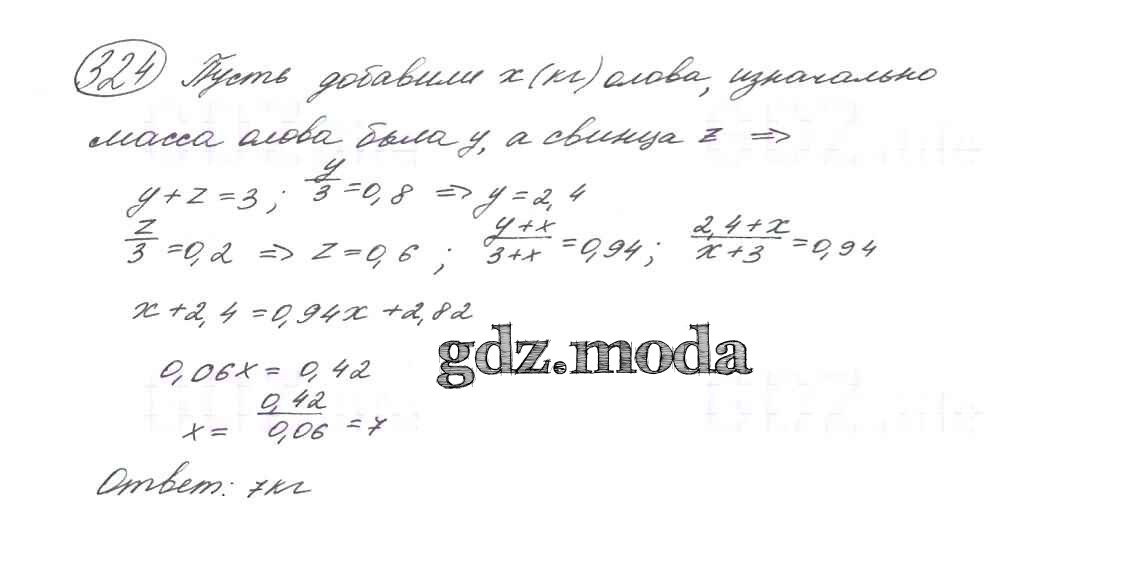 324 Пусть добавили x (кг) олова, изначально
масса олова была y, а свинца z ⇒
y + z = 3 ; y/3 = 0,8 ⇒ y = 2,4
z/3 = 0,2 ⇒ z = 0,6 ; y+x/3+x = 0,94 ; 2,4+x/x+3 = 0,94
x + 2,4 = 0,94x + 2,82
gdz.moda
0,06x = 0,42
x = 0,42/0,06 = 7
Ответ: 7кг